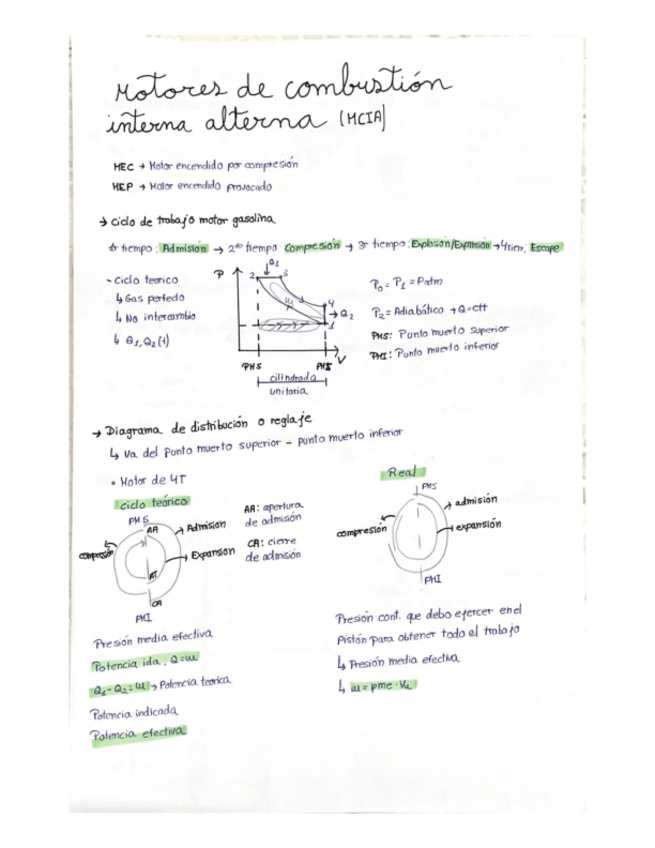 Motores de combustión
interna alterna (MCIA)
MEC → Motor encendido por compresión
MEP → Motor encendido provocado
→ Ciclo de trabajo motor gasolina
1r tiempo: Admisión → 2do tiempo Compresión → 3r tiempo: Explosion/Expansión → 4 tiem, Escape
- Ciclo teorico
↳ Gas perfecto
↳ No intercambio
↳ Q1, Q2 (1)
P
Q1
2
3
4
1
→ Q2
V
PMS
PMI
cilindrada
unitaria
P0 = P1 = Patm
P2 = Adiabático → Q = ctt
PMS: Punto muerto superior
PMI: Punto muerto inferior
→ Diagrama de distribución o reglaje
↳ Va del punto muerto superior - punto muerto inferior
• Motor de 4T
ciclo teórico
PMS
AA
→ Admision
compresión
→ Expansion
AT
CA
PMI
AA: apertura
de admisión
CA: cierre
de admisión
Real
PMS
→ admisión
compresión
→ expansión
PMI
Presión media efectiva
Potencia ida: Q = W
Q1 - Q2 = W → Potencia teorica
Potencia indicada
Potencia efectiva
Presión cont. que debo ejercer en el
Pistón para obtener todo el trabajo
↳ Presión media efectiva
↳ W = pme ·